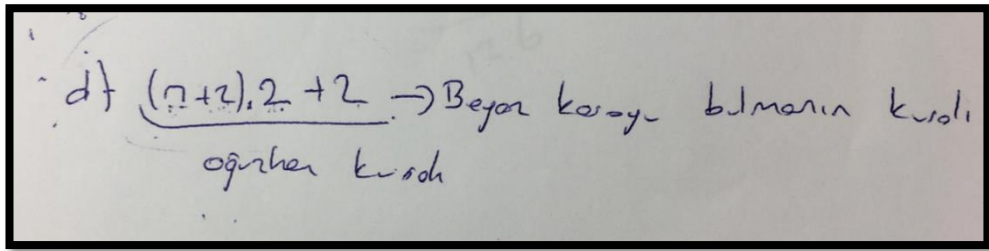 d) (n+2).2+2 → Beyaz kareyi bulmanın kuralı
oğuzhan kuralı